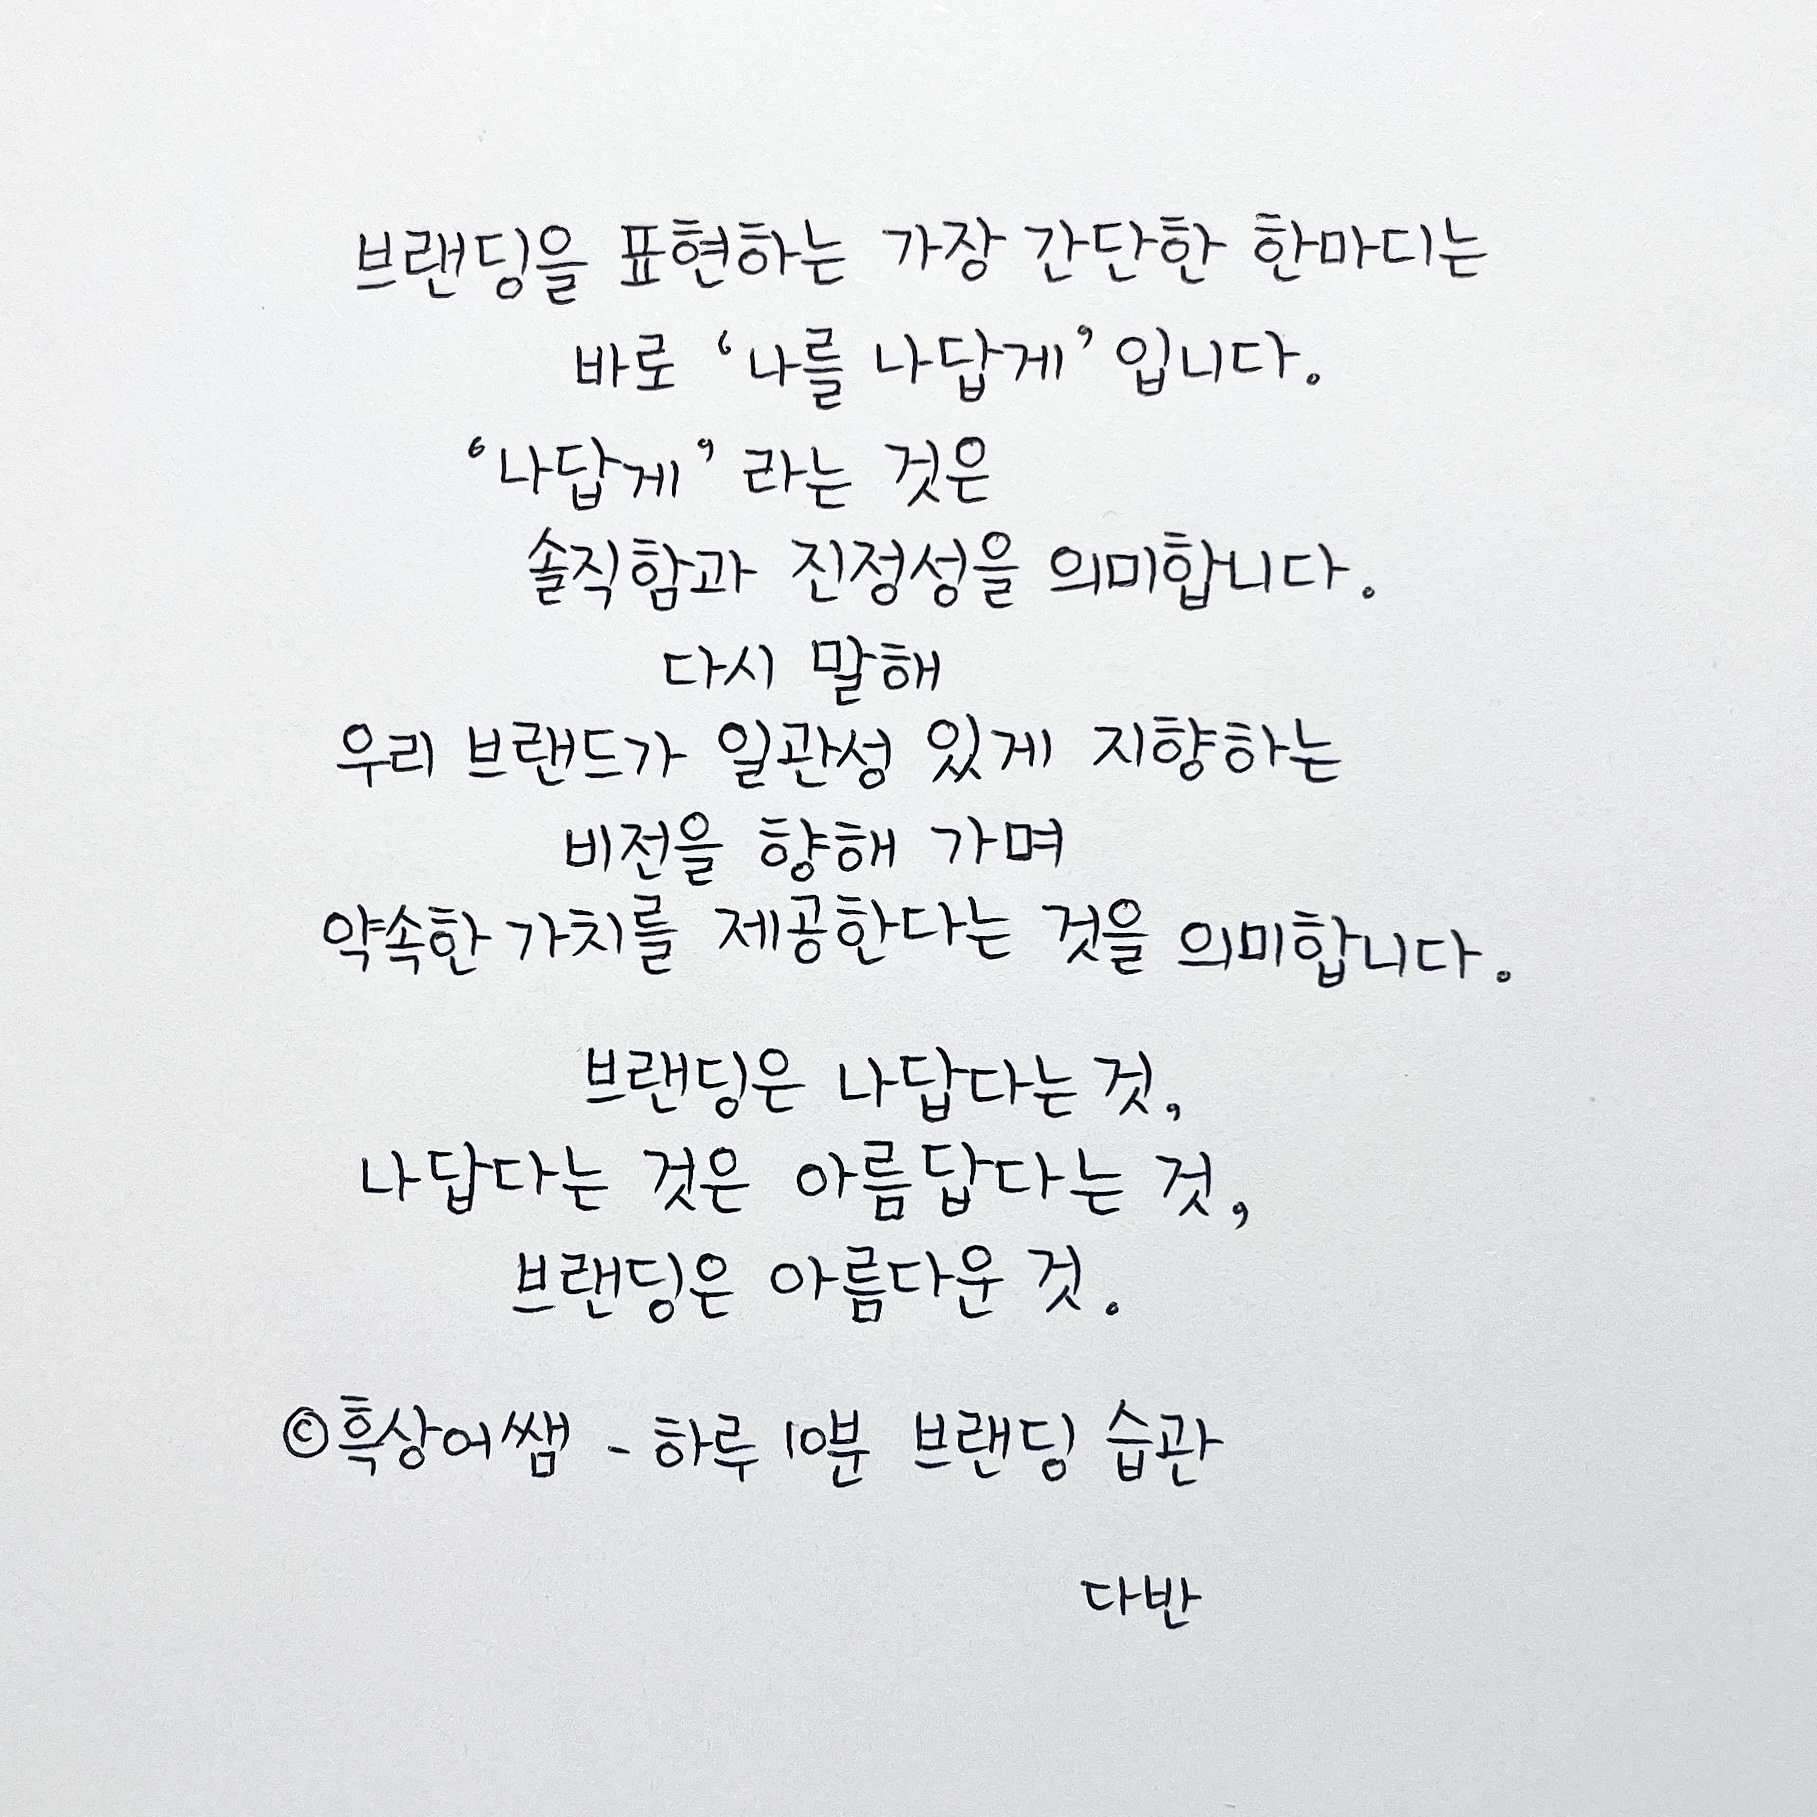 브랜딩을 표현하는 가장 간단한 한마디는
바로 '나를 나답게' 입니다.
'나답게' 라는 것은
솔직함과 진정성을 의미합니다.
다시 말해
우리 브랜드가 일관성 있게 지향하는
비전을 향해 가며
약속한 가치를 제공한다는 것을 의미합니다.
브랜딩은 나답다는 것,
나답다는 것은 아름답다는 것,
브랜딩은 아름다운 것.
©흑상어쌤 - 하루 10분 브랜딩 습관
다반